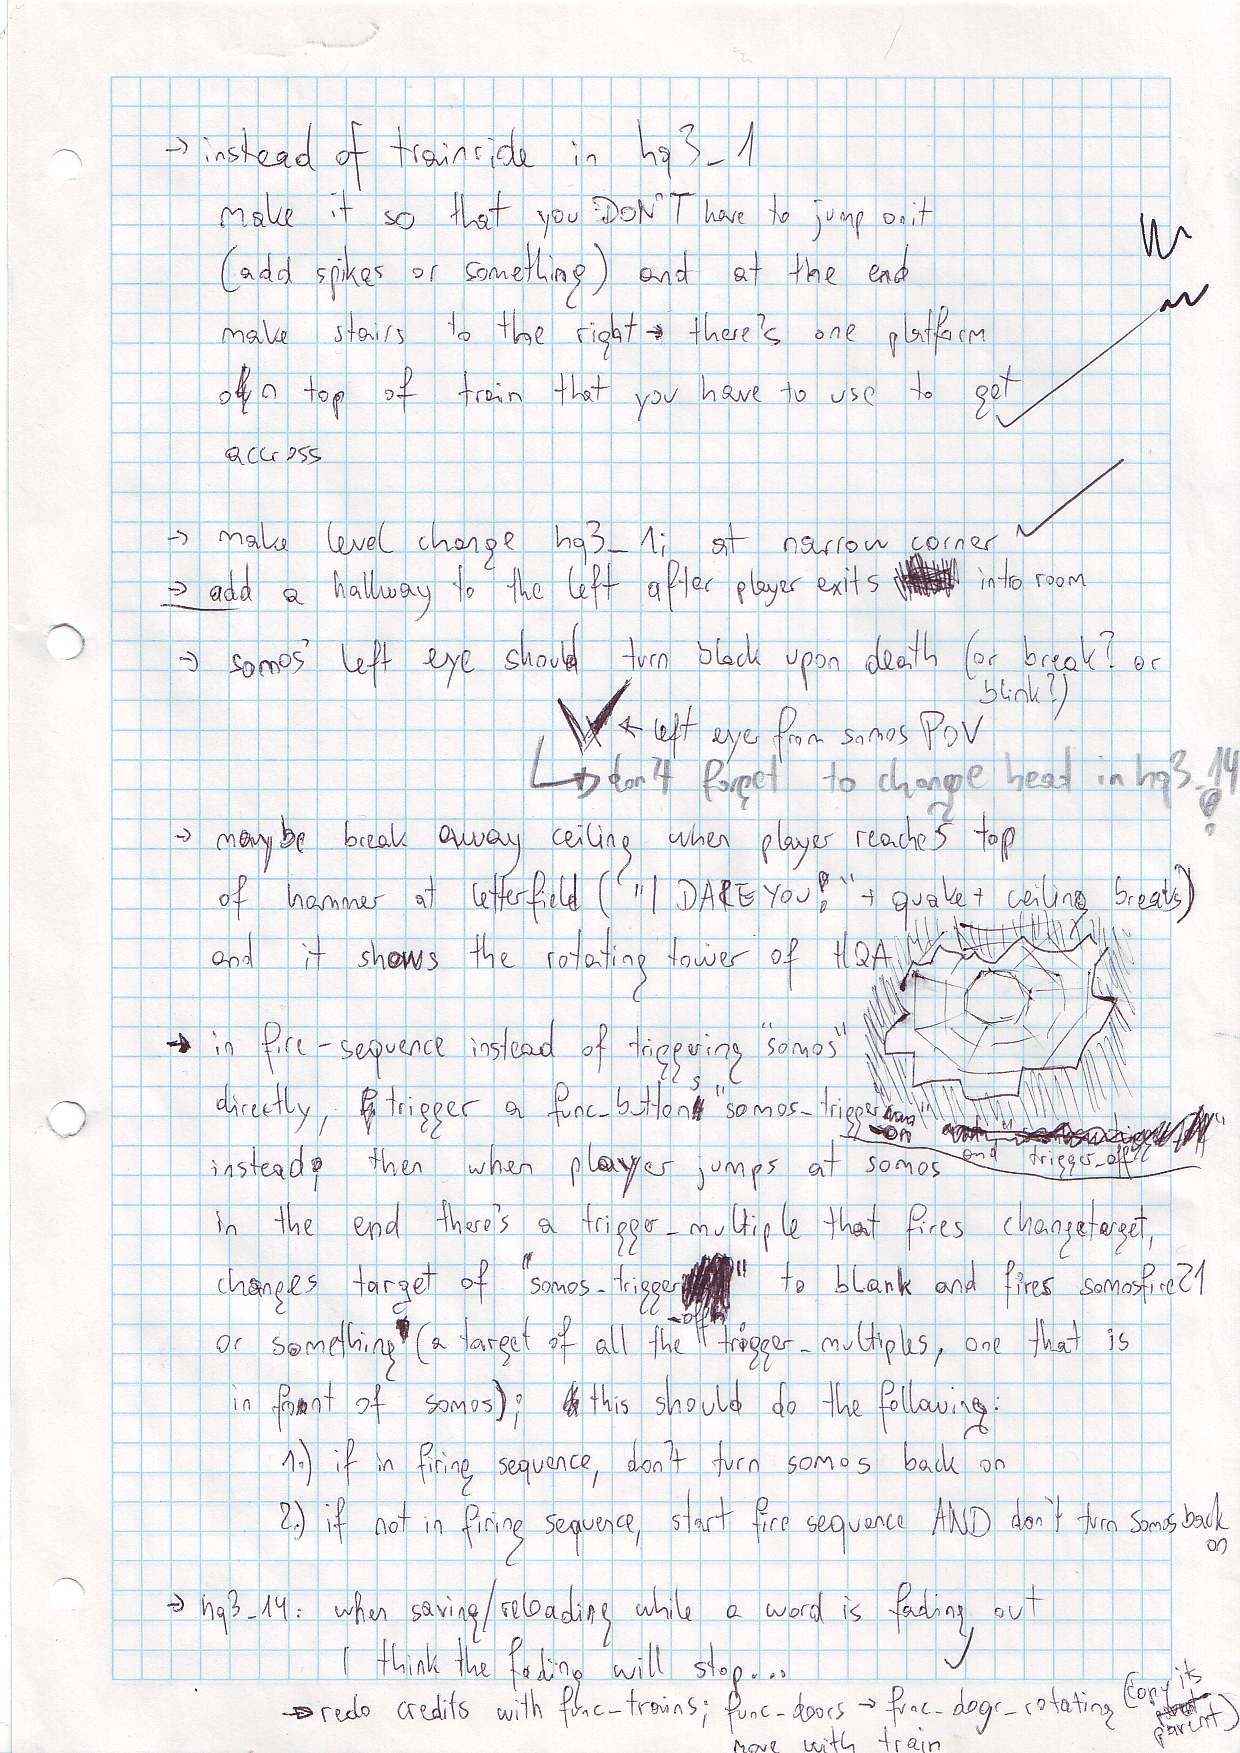 → instead of trainride in hq3_1
make it so that you DON'T have to jump on it
(add spikes or something) and at the end
make stairs to the right → there's one platform
on top of train that you have to use to get
accross
→ make level change hq3_1i at narrow corner
→ add a hallway to the left after player exits intro room
→ somos' left eye should turn black upon death (or break? or
blink?)
← left eye from somos POV
→ don't forget to change head in hq3_14!
→ maybe break away ceiling when player reaches top
of hammer at letterfield ("I DARE YOU!" + quake + ceiling breaks)
and it shows the rotating tower of HQA
→ in fire-sequence instead of triggering "somos"
directly, trigger a func_buttons "somos_trigger
-on
and trigger_off"
instead, then when player jumps at somos
in the end there's a trigger_multiple that fires changetarget,
changes target of "somos_trigger
-off
" to blank and fires somosfire21
or something (a target of all the trigger_multiples, one that is
in front of somos); this should do the following:
1.) if in firing sequence, don't turn somos back on
2.) if not in firing sequence, start fire sequence AND don't turn somos back
on
→ hq3_14: when saving/reloading while a word is fading out
I think the fading will stop....
→ redo credits with func_trains; func_doors → func_door_rotating (copy its
parent)
move with train